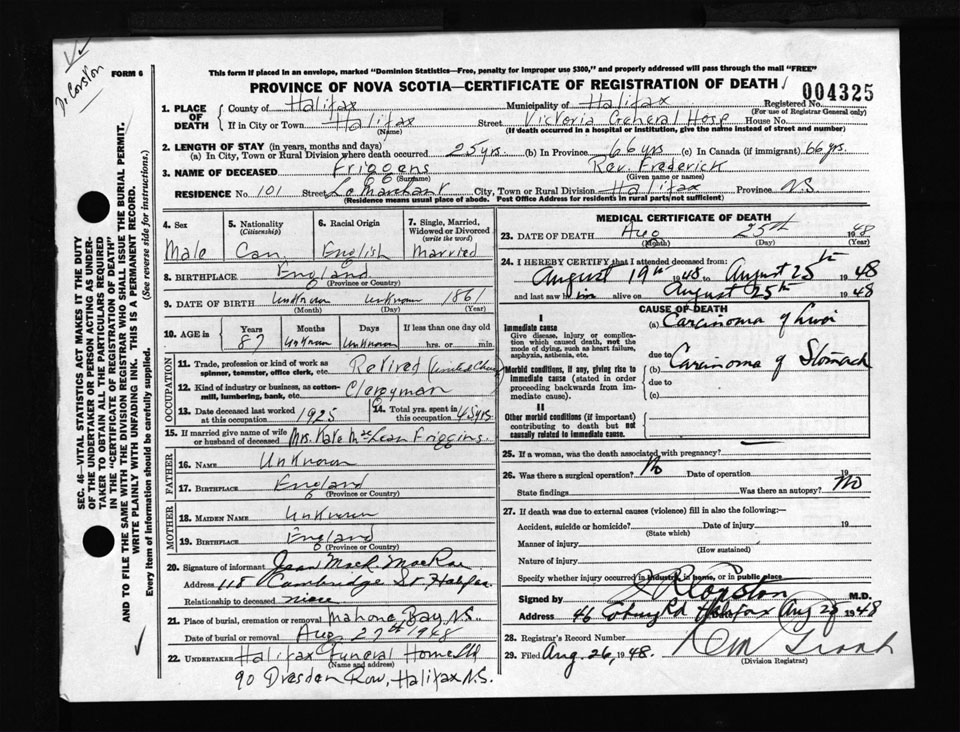 J. Corston
FORM 6
This form if placed in an envelope, marked "Dominion Statistics—Free, penalty for improper use $300," and properly addressed will pass through the mail "FREE"
PROVINCE OF NOVA SCOTIA—CERTIFICATE OF REGISTRATION OF DEATH
004325
1. PLACE OF DEATH
County of Halifax Municipality of Halifax Registered No.
(For use of Registrar General only)
If in City or Town Halifax Street Victoria General Hosp House No.
(Name) (If death occurred in a hospital or institution, give the name instead of street and number)
2. LENGTH OF STAY (in years, months and days)
(a) In City, Town or Rural Division where death occurred 25 yrs. (b) In Province 66 yrs (c) In Canada (if immigrant) 66 yrs.
3. NAME OF DECEASED Friggens Rev. Frederick
(Surname) (Given name or names)
RESIDENCE No. 101 Street Le Marchant City, Town or Rural Division Halifax Province N.S.
(Residence means usual place of abode. Post Office Address for residents in rural parts not sufficient)
4. Sex
Male
5. Nationality
(Citizenship)
Can.
6. Racial Origin
English
7. Single, Married, Widowed or Divorced
(write the word)
Married
8. BIRTHPLACE England
(Province or Country)
9. DATE OF BIRTH Unknown Unknown 1861
(Month) (Day) (Year)
10. AGE in
Years Months Days If less than one day old
87 Unknown Unknown hrs. or min.
OCCUPATION
11. Trade, profession or kind of work as spinner, teamster, office clerk, etc. Retired (United Church)
12. Kind of industry or business, as cotton-mill, lumbering, bank, etc. Clergyman
13. Date deceased last worked at this occupation 1925
14. Total yrs. spent in this occupation 45 yrs.
15. If married give name of wife or husband of deceased Mrs. Kate McLean Friggins.
FATHER
16. NAME Unknown
17. BIRTHPLACE England
(Province or Country)
MOTHER
18. MAIDEN NAME Unknown
19. BIRTHPLACE England
(Province or Country)
20. Signature of informant Jean MacK. MacRae
Address 118 Cambridge St. Halifax
Relationship to deceased niece
21. Place of burial, cremation or removal Mahone Bay N.S.
Date of burial or removal Aug 27th 1948
22. UNDERTAKER Halifax Funeral Home Ltd
(Name and address)
90 Dresden Row, Halifax N.S.
MEDICAL CERTIFICATE OF DEATH
23. DATE OF DEATH Aug 25th 1948
(Month) (Day) (Year)
24. I HEREBY CERTIFY that I attended deceased from:
August 19th 1948 to August 25th 1948
and last saw him alive on August 25th 1948
CAUSE OF DEATH
I
Immediate cause
Give disease, injury or complication which caused death, not the mode of dying, such as heart failure, asphyxia, asthenia, etc.
(a) Carcinoma of Liver
due to
Morbid conditions, if any, giving rise to immediate cause (stated in order proceeding backwards from immediate cause).
(b) Carcinoma of Stomach
due to
(c)
II
Other morbid conditions (if important) contributing to death but not causally related to immediate cause.
25. If a woman, was the death associated with pregnancy?
26. Was there a surgical operation? No Date of operation 19
State findings Was there an autopsy? No
27. If death was due to external causes (violence) fill in also the following:—
Accident, suicide or homicide? Date of injury 19
(State which)
Manner of injury
(How sustained)
Nature of injury
Specify whether injury occurred in industry, in home, or in public place
Signed by J R Corston M.D.
Address 46 Coburg Rd Halifax Aug 1948
28. Registrar's Record Number
29. Filed Aug. 26, 1948.
(Division Registrar)
SEC. 46—VITAL STATISTICS ACT MAKES IT THE DUTY
OF THE UNDERTAKER OR PERSON ACTING AS UNDER-
TAKER TO OBTAIN ALL THE PARTICULARS REQUIRED
IN THE "CERTIFICATE OF REGISTRATION OF DEATH"
AND TO FILE THE SAME WITH THE DIVISION REGISTRAR WHO SHALL ISSUE THE BURIAL PERMIT.
WRITE PLAINLY WITH UNFADING INK. THIS IS A PERMANENT RECORD.
Every item of information should be carefully supplied. (See reverse side for instructions.)